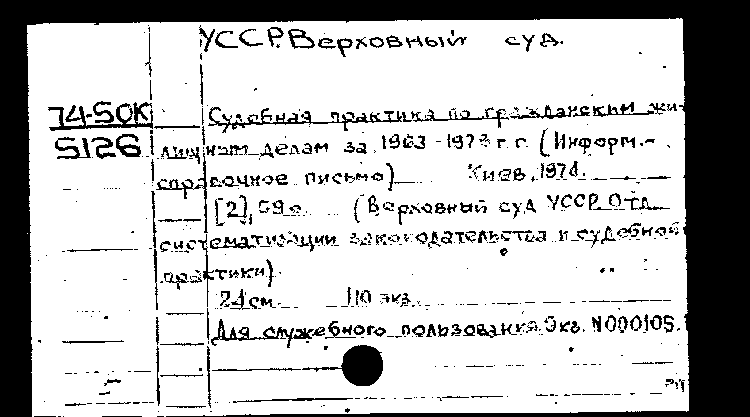 УССР. Верховный суд.
74-50К Судебная практика по гражданским жи-
5126 лищным делам за 1963-1973 г.г. (Информ.-
справочное письмо) Киев, 1974.
[2], 59с. (Верховный суд УССР. Отд.
систематизации законодательства и судебной
практики)
24 см. 110 экз.
Для служебного пользования. Экз. N000105.